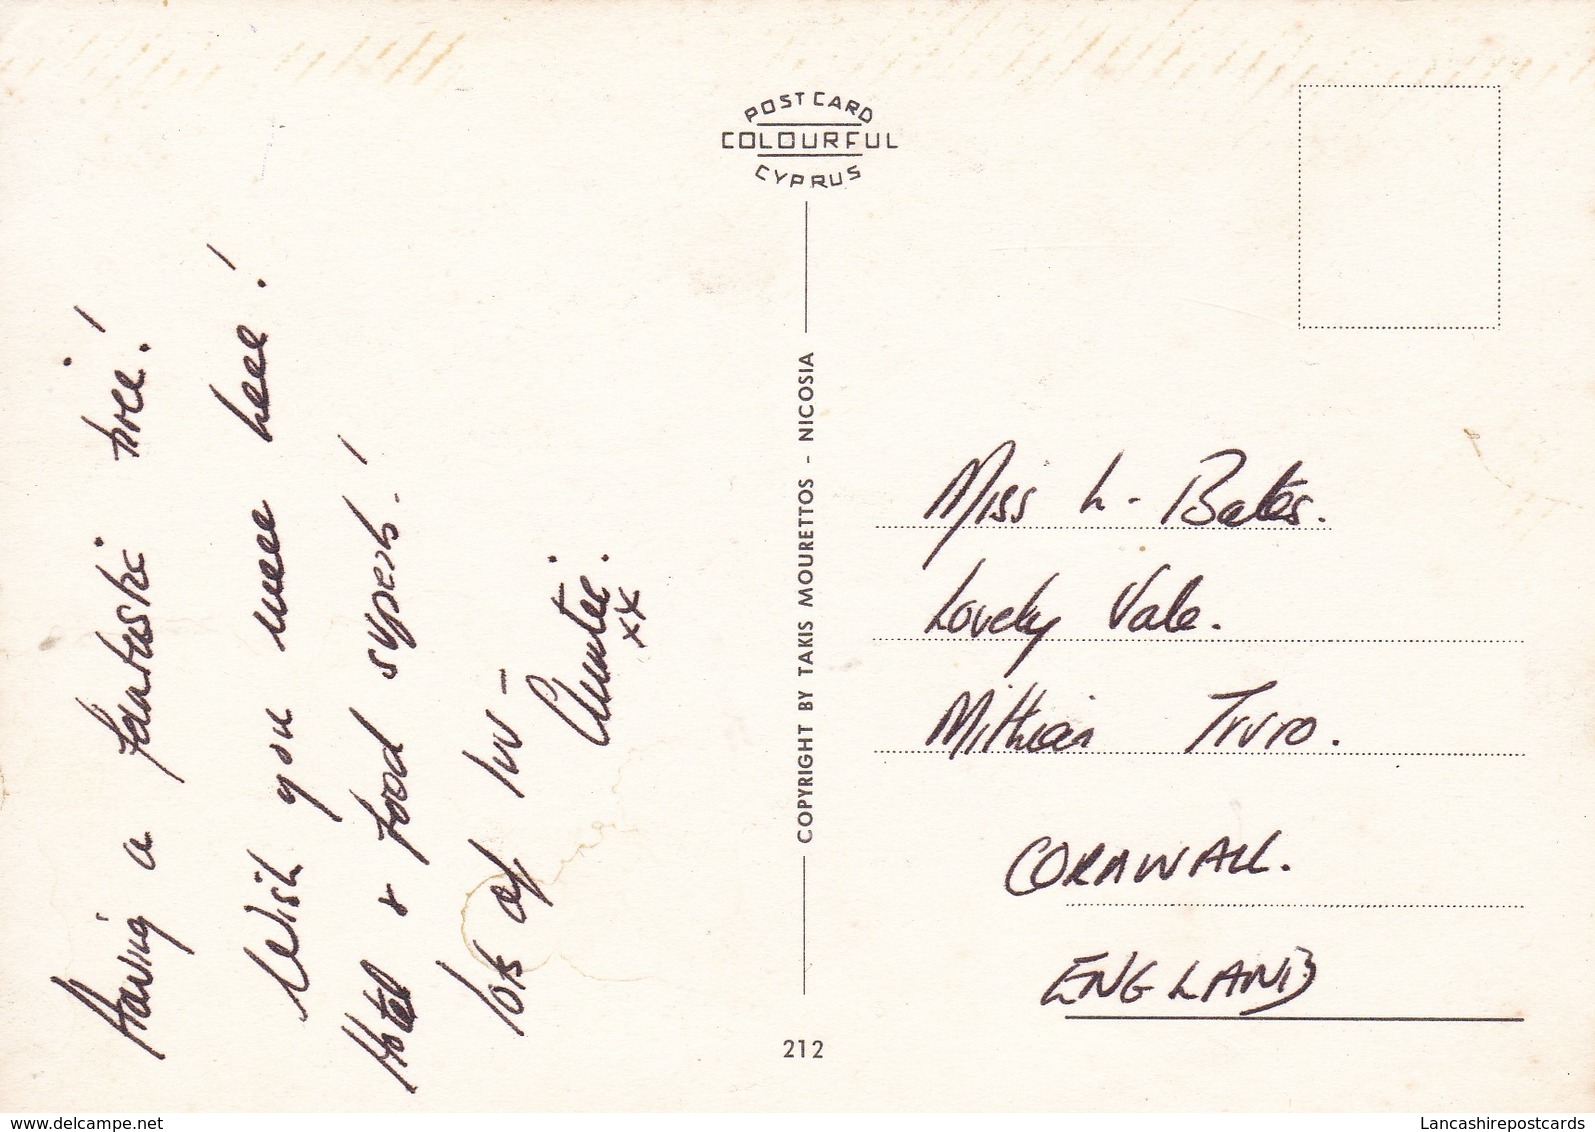 POST CARD
COLOURFUL
CYPRUS
Having a fantastic time!
Wish you were here!
Hotel & food superb!
lots of luv -
Auntie.
xx
COPYRIGHT BY TAKIS MOURETTOS - NICOSIA
Miss L. Bates.
Lovely Vale.
Mithian Truro.
CORNWALL.
ENGLAND
212
www.delcampe.net
Lancashirepostcards